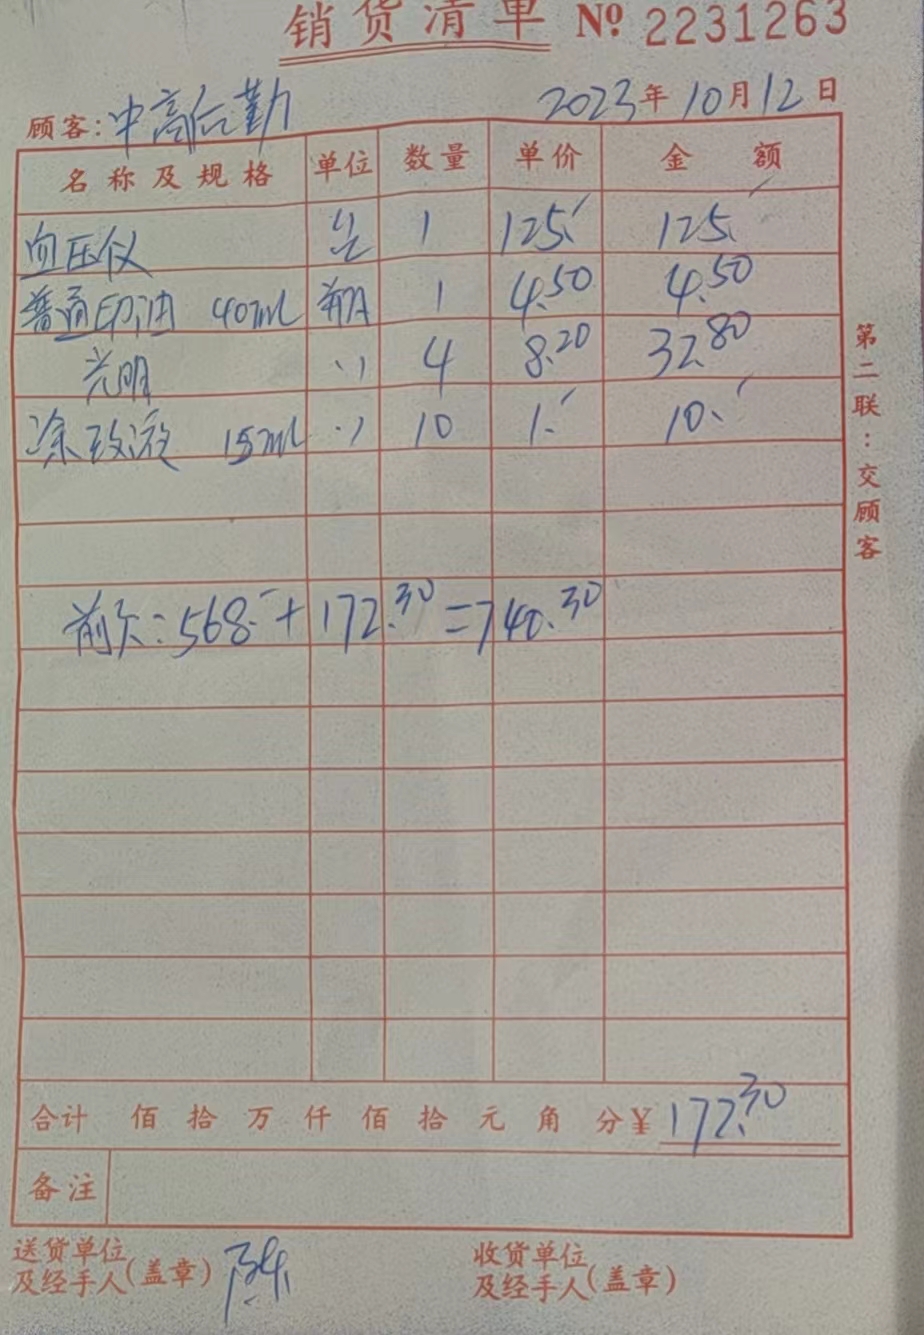 销货清单 № 2231263
顾客:中高后勤 2023年10月12日
名称及规格 单位 数量 单价 金额
血压仪 台 1 125. 125.
普通印油 40ml 瓶 1 4.50 4.50
光明 〃 4 8.20 32.80
涂改液 15ml 〃 10 1. 10.
前欠:568.-+172.30=740.30
合计 佰拾万仟佰拾元角分¥172.30
备注
送货单位及经手人(盖章) 陈
收货单位及经手人(盖章)
第二联:交顾客